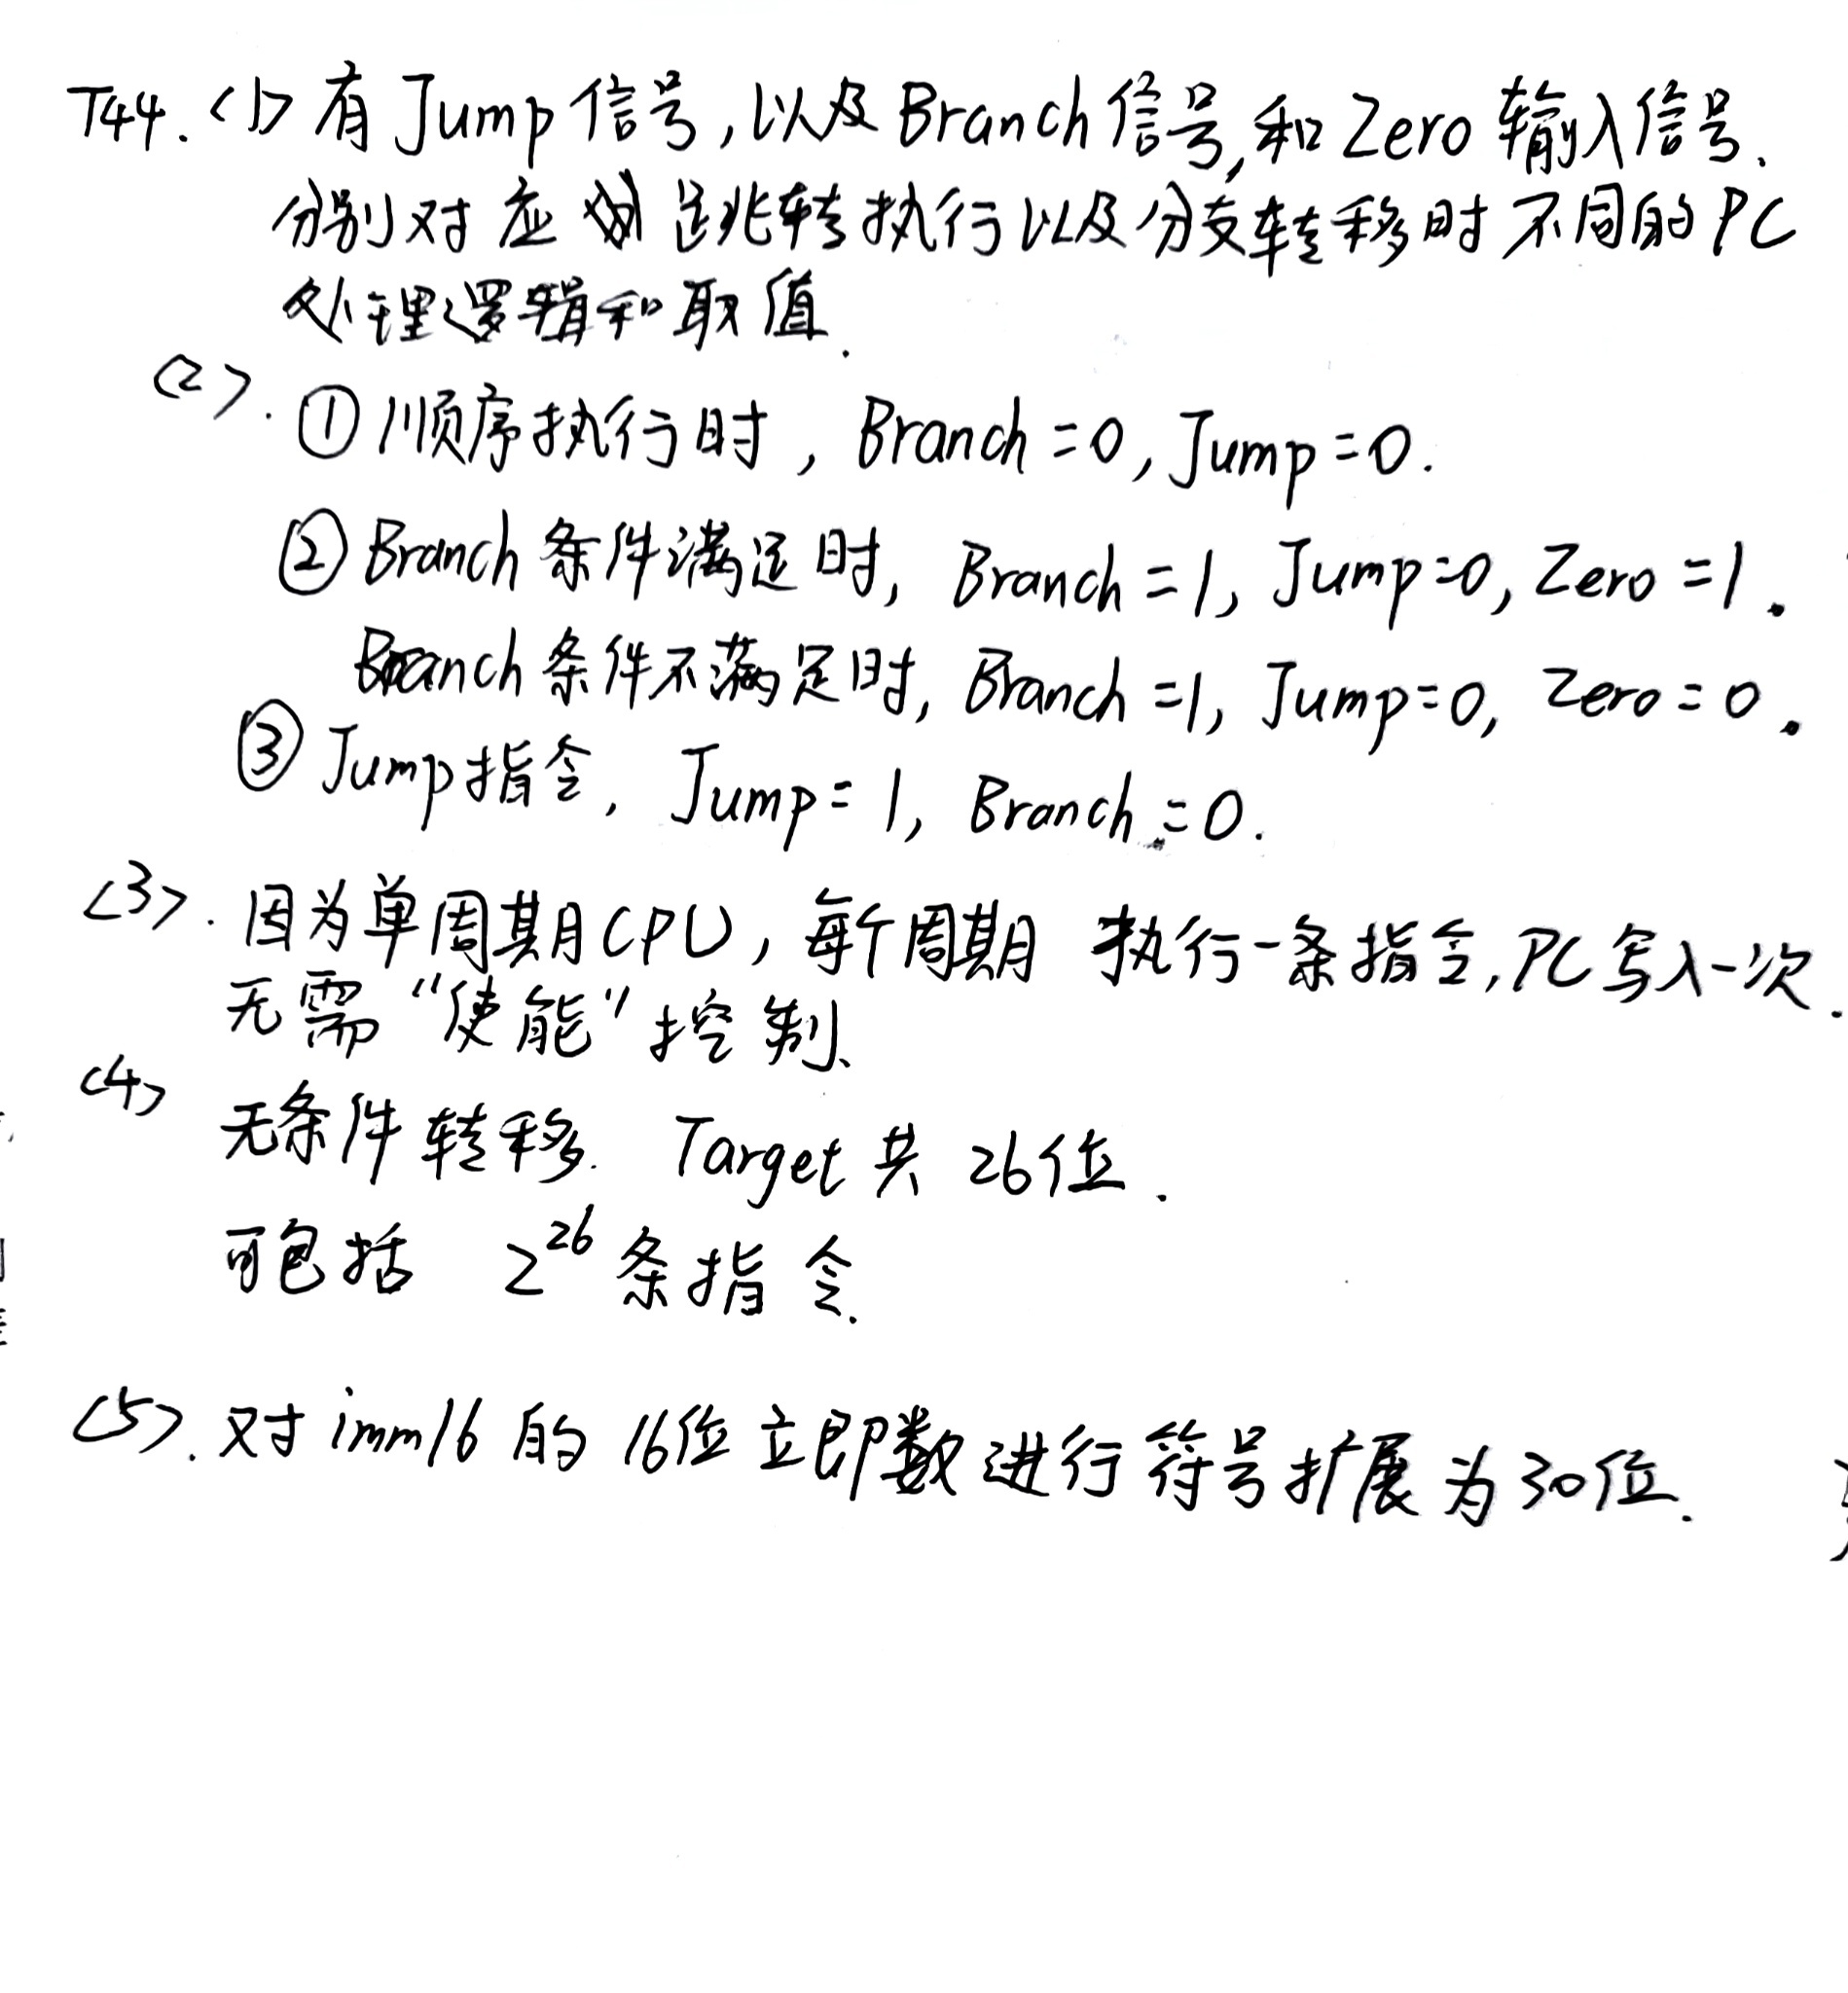 T44. <1> 有 Jump 信号, 以及 Branch 信号, 和 Zero 输入信号.
分别对应跳转执行以及分支转移时不同的 PC
处理逻辑和取值.
<2>. ① 顺序执行时, Branch=0, Jump=0.
② Branch 条件满足时, Branch=1, Jump=0, Zero=1.
Branch 条件不满足时, Branch=1, Jump=0, zero=0.
③ Jump 指令, Jump=1, Branch=0.
<3>. 因为单周期CPU, 每个周期 执行一条指令, PC 写入一次.
无需 "使能" 控制.
<4>
无条件转移. Target 共 26位.
可包括 2^26 条指令.
<5>. 对 imm16 的 16位立即数进行符号扩展为 30位.